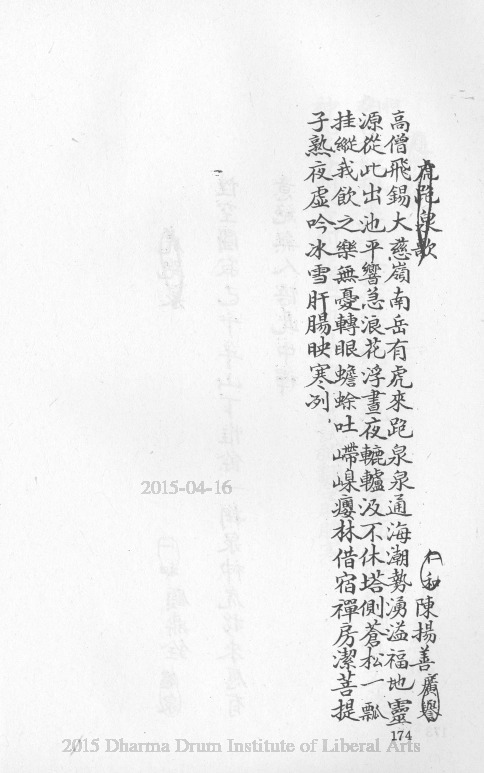 虎跑泉歌
仁和陳揚善廣譽
高僧飛錫大慈嶺南岳有虎來跑泉泉通海潮勢湧溢福地靈
源從此出池平響急浪花浮晝夜轆轤汲不休塔側蒼松一瓢
挂縱我飲之樂無憂轉眼蟾蜍吐嵽嵲癭林借宿禪房潔菩提
子熟夜虛吟冰雪肝腸映寒列
174
2015-04-16
2015 Dharma Drum Institute of Liberal Arts